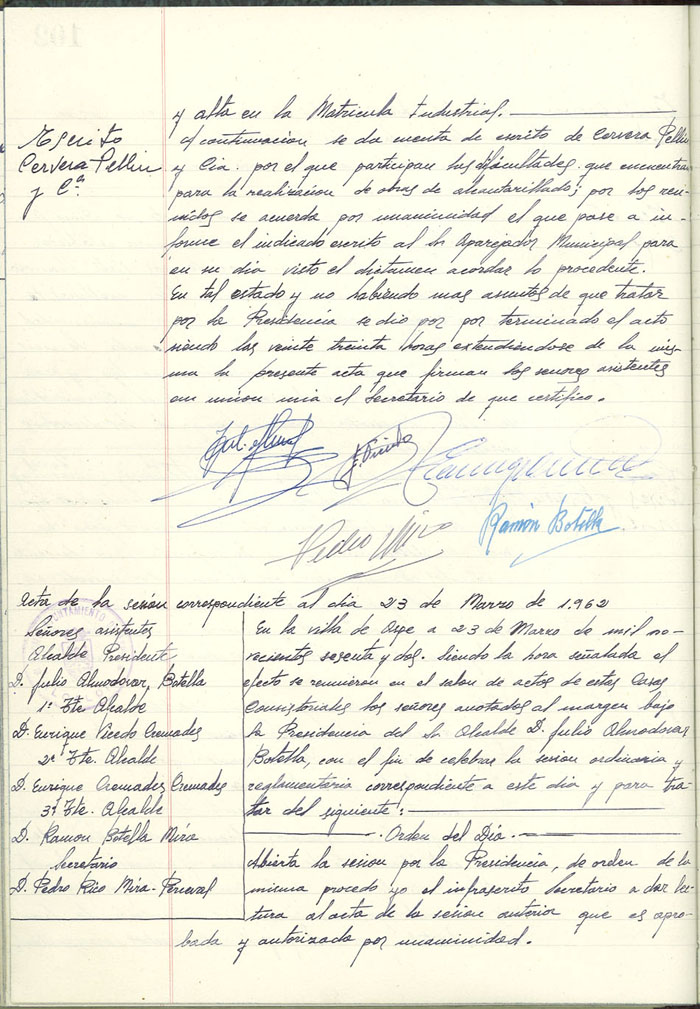 Escrito
Cervera Pellin
y Cª.
y alta en la Matricula Industrial.
A continuacion se da cuenta de escrito de Cervera Pellin
y Cia. por el que participan las dificultades que encuentran
para la realizacion de obras de alcantarillado; por los reu-
nidos se acuerda por unanimidad el que pase a in-
forme el indicado escrito al Sr Aparejador Municipal para
en su dia visto el dictamen acordar lo procedente.
En tal estado y no habiendo mas asuntos de que tratar
por la Presidencia se dio por por terminado el acto
siendo las veinte treinta horas extendiendose de la mis-
ma la presente acta que firman los señores asistentes
em union mia el Secretario de que certifico.
Ramón Botella
Pedro
Acta de la sesion correspondiente al dia 23 de Marzo de 1.962
Señores asistentes
Alcalde Presidente
D. Julio Almodovar Botella
1º Tte Alcalde
D. Enrique Vicedo Cremades
2º Tte. Alcalde
D. Enrique Cremades Cremades
3º Tte. Alcalde
D. Ramon Botella Mira
Secretario
D. Pedro Rico Mira-Perceval
En la villa de Aspe a 23 de Marzo de mil no-
vecientos sesenta y dos. Siendo la hora señalada el
efecto se reunieron en el salon de actos de estas Casas
Consistoriales los señores anotados al margen bajo
la Presidencia del Sr Alcalde D. Julio Almodovar
Botella, con el fin de celebrar la sesion ordinaria y
reglamentaria correspondiente a este dia y para tra-
tar del siguiente:
Orden del Dia.
Abierta la sesion por la Presidencia, de orden de la
misma procedo yo el infrascrito Secretario a dar lec-
tura al acta de la sesion anterior que es apro-
bada y autorizada por unanimidad.